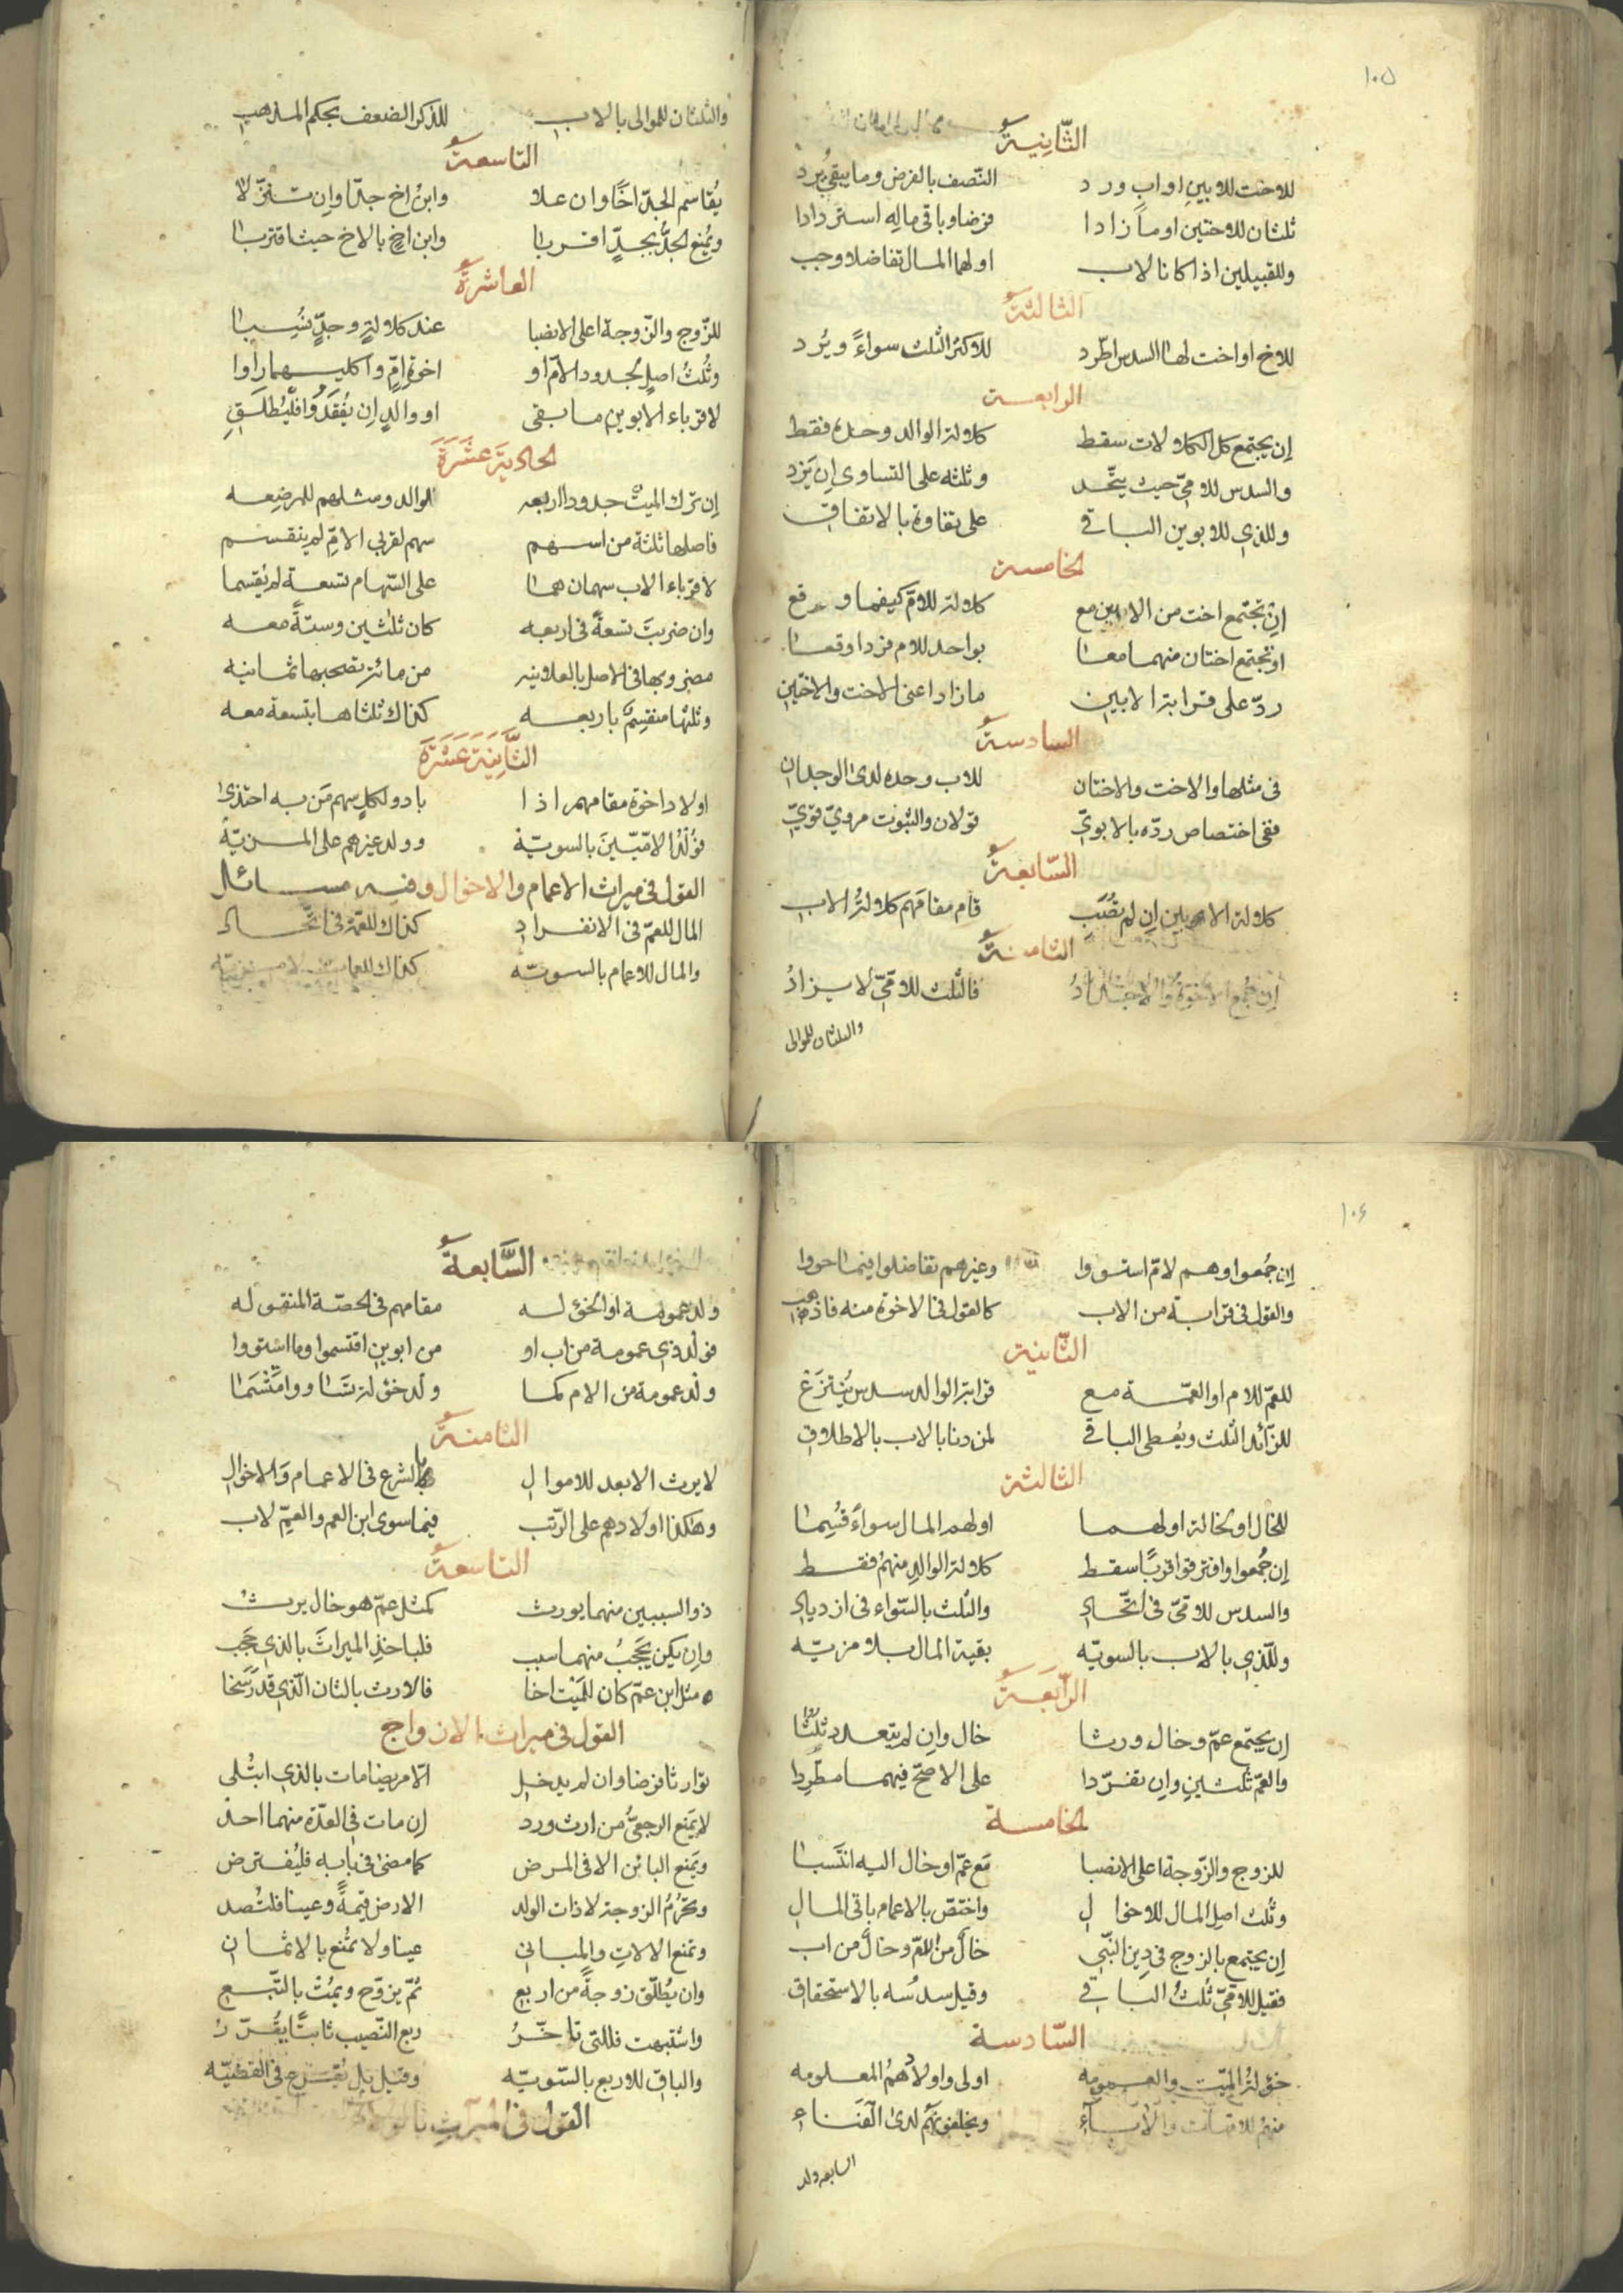 ١٠٥
الثّانيةُ
للاخت للابينِ او ابٍ ورد النّصف بالفرض وما يبقى يُرد
ثلثان للاختين او ما زادا فرضا وباقي ماله استردادا
وللقبيلين اذا كانا لاب اولهما المال تفاضلا وجب
الثالثةُ
للاخ او اخت لها السدس اطّرد للاكثر الثلث سواءً ويُرد
الرابعة
إن يجتمع كل الكلالات سقط كلالة الوالد وحده فقط
والسدس للامّيّ حيث يتّحد وثلثه على التساوي إن يَزد
وللذي للابوين الباقي على تفاوة بالاتفاق
الخامسة
إن تجتمع اخت من الابين مع كلالة للامّ كيفما وقع
او تجتمع اختان منهما معا بواحد للام فردا وقعا
ردّ على قرابة الابين ما زاد اعني الاخت والاختين
السادسةُ
في مثلها والاخت والاختان للاب وحده لدى الوجدان
ففي اختصاص ردّه بالابويّ قولان والثبوت مرويّ قويّ
السّابعةُ
كلالة الابين إن لم تُصَبِ قام مقامَهم كلالةُ الاب
الثامنةُ
إن جُمع الاخوةُ والاجدادُ فالثلث للامّيّ لا يزادُ
والثلثان للموالى
والثلثان للموالى بالاب للذكر الضعف بحكم المذهب
التاسعةُ
يُقاسم الجدّ اخًا وان علا وابنُ اخ جدّا وان تنزّلا
ويُمنع الجدُّ بجدٍّ اقربا وابن اخٍ بالاخ حيث اقتربا
العاشرةُ
للزّوج والزّوجة اعلى الانصبا عند كلالةٍ وجدٍّ نُسِبا
وثُلثُ اصلٍ لجدود الامّ او اخوة امٍّ او كليهما راوا
لاقرباء الابوين ما بقى او والدٍ إن يُفقَدُوا فليُطلَقِ
الحاديةَ عَشَرَةَ
إن ترك الميتُ جدودا اربعه لوالد ومثلهم للمرضعه
فاصلها ثلثة من اسهم سهم لقربى الامِّ لم ينقسم
لاقرباء الاب سهمان هما على السّهام تسعة لم يُقسما
وان ضربتَ تسعةً في اربعه كان ثلثين وستّةً معه
مضروبها في الاصل بالعلانيه من مائة تصحبها ثمانيه
وثلثها منقسِمٌ باربعه كذاك ثلثاها بتسعة معه
الثَّانيةَ عَشَرَةَ
اولاد اخوة مقامهم اذا بادوا لكلٍ سهم مَن به احتذى
فوُلْدُ الامّيّينَ بالسويّة وولد غيرهم على المزيّة
القول في ميراث الاعمام والاخوال وفيه مسائل
المال للعمّ في الانفراد كذاك للعمّة في اتّحاد
والمال للاعمام بالسويّه كذاك للعمات
١٠٦
إن جُمعوا وهم لامّ استووا وغيرهم تفاضلوا فيما حووا
والقول في قرابة من الاب كالقول في الاخوة منه فاذهب
الثّانية
للعمّ للام او العمّة مع قرابة الوالد سدس يُنتزَع
للزّائد الثلث ويُعطى الباقي لمن دنا بالاب بالاطلاق
الثالثة
للخال او لخالة اولهما اولهم المال سواءً قُسِما
إن جُمعوا وافترقوا قربًا سقط كلالة الوالدِ منهمُ فقط
والسدس للامّيّ في اتّحاد والثلث بالسّواء في ازدياد
وللّذي بالاب بالسويّه بقية المال بلا مزيّه
الرّابَعةُ
إن يجتمع عمّ وخال ورثا خال وإن لم يتعدد ثلثا
والعمّ ثلثينِ وإن تفرّدا على الاصحّ فيهما مطّرِدا
الخامسة
للزوج والزّوجة اعلى الانصبا مَع عمّ او خال اليه انتَسَبا
وثلث اصل المال للاخوال واختصّ بالاعمام باقي المال
إن يجتمع بالزوج في دِينِ النّبي خالٌ من الامّ وخالٌ من اب
فقيل للامّيّ ثُلثُ الباقي وقيل سدسُه بالاستحقاق
السّادسة
خؤلةُ الميّت والعمومه اولى واولادهُمُ المعلومه
منهمُ للامّهات والآبآءِ ويخلفونهم لدى الفَناءِ
السابعه ولد
السَّابعةُ
ولد عمومة او الخؤله مقامهم في الحصّة المنقوله
فوُلْد ذي عمومة من اب او من ابوين اقتسموا وما استووا
ولد عمومة من الام كما ولْد خؤلة تساووا مَقْسَما
الثامنةُ
لا يرث الابعد للاموال بالشرع في الاعمام وَالاخوال
وهكذا اولادهم على الرّتب فيما سوى ابن العم والعمِّ لاب
التاسعةُ
ذو السببين منهما يورث كمثل عمّ هو خال يرثُ
وإن يكن يَحجُبُ منهما سبب فلياخذ الميراثَ بالذي حَجَب
مثل ابن عمّ كان للمَيْت اخا فالارث بالثان الّذي قد رَسَخا
القول في ميراث الازواج
توارثا فرضا وان لم يدخل الّا مريضا مات بالذي ابتُلى
لا يَمنع الرجعىُّ من ارث ورد إن مات في العدّة منهما احد
ويَمنع البائن الا في المرض كما مضى في بابه فليُفترض
وتُحرَمُ الزوجة لا ذات الولد الارض قيمةً وعينا فلتُصد
وتمنع الالاتِ والمباني عينا ولا تُمنع بالاثمان
وان يُطلّق زوجةً من اربع ثمّ يزوّج ويمُتْ بالتّبع
واشتبهت فللتي تاخّرُ ربع النّصيب ثابتًا يُقرّرُ
والباقي للاربع بالسّويّه وقيل بل يُقرَع في القضيّه
القول في الميراثِ بالولاء